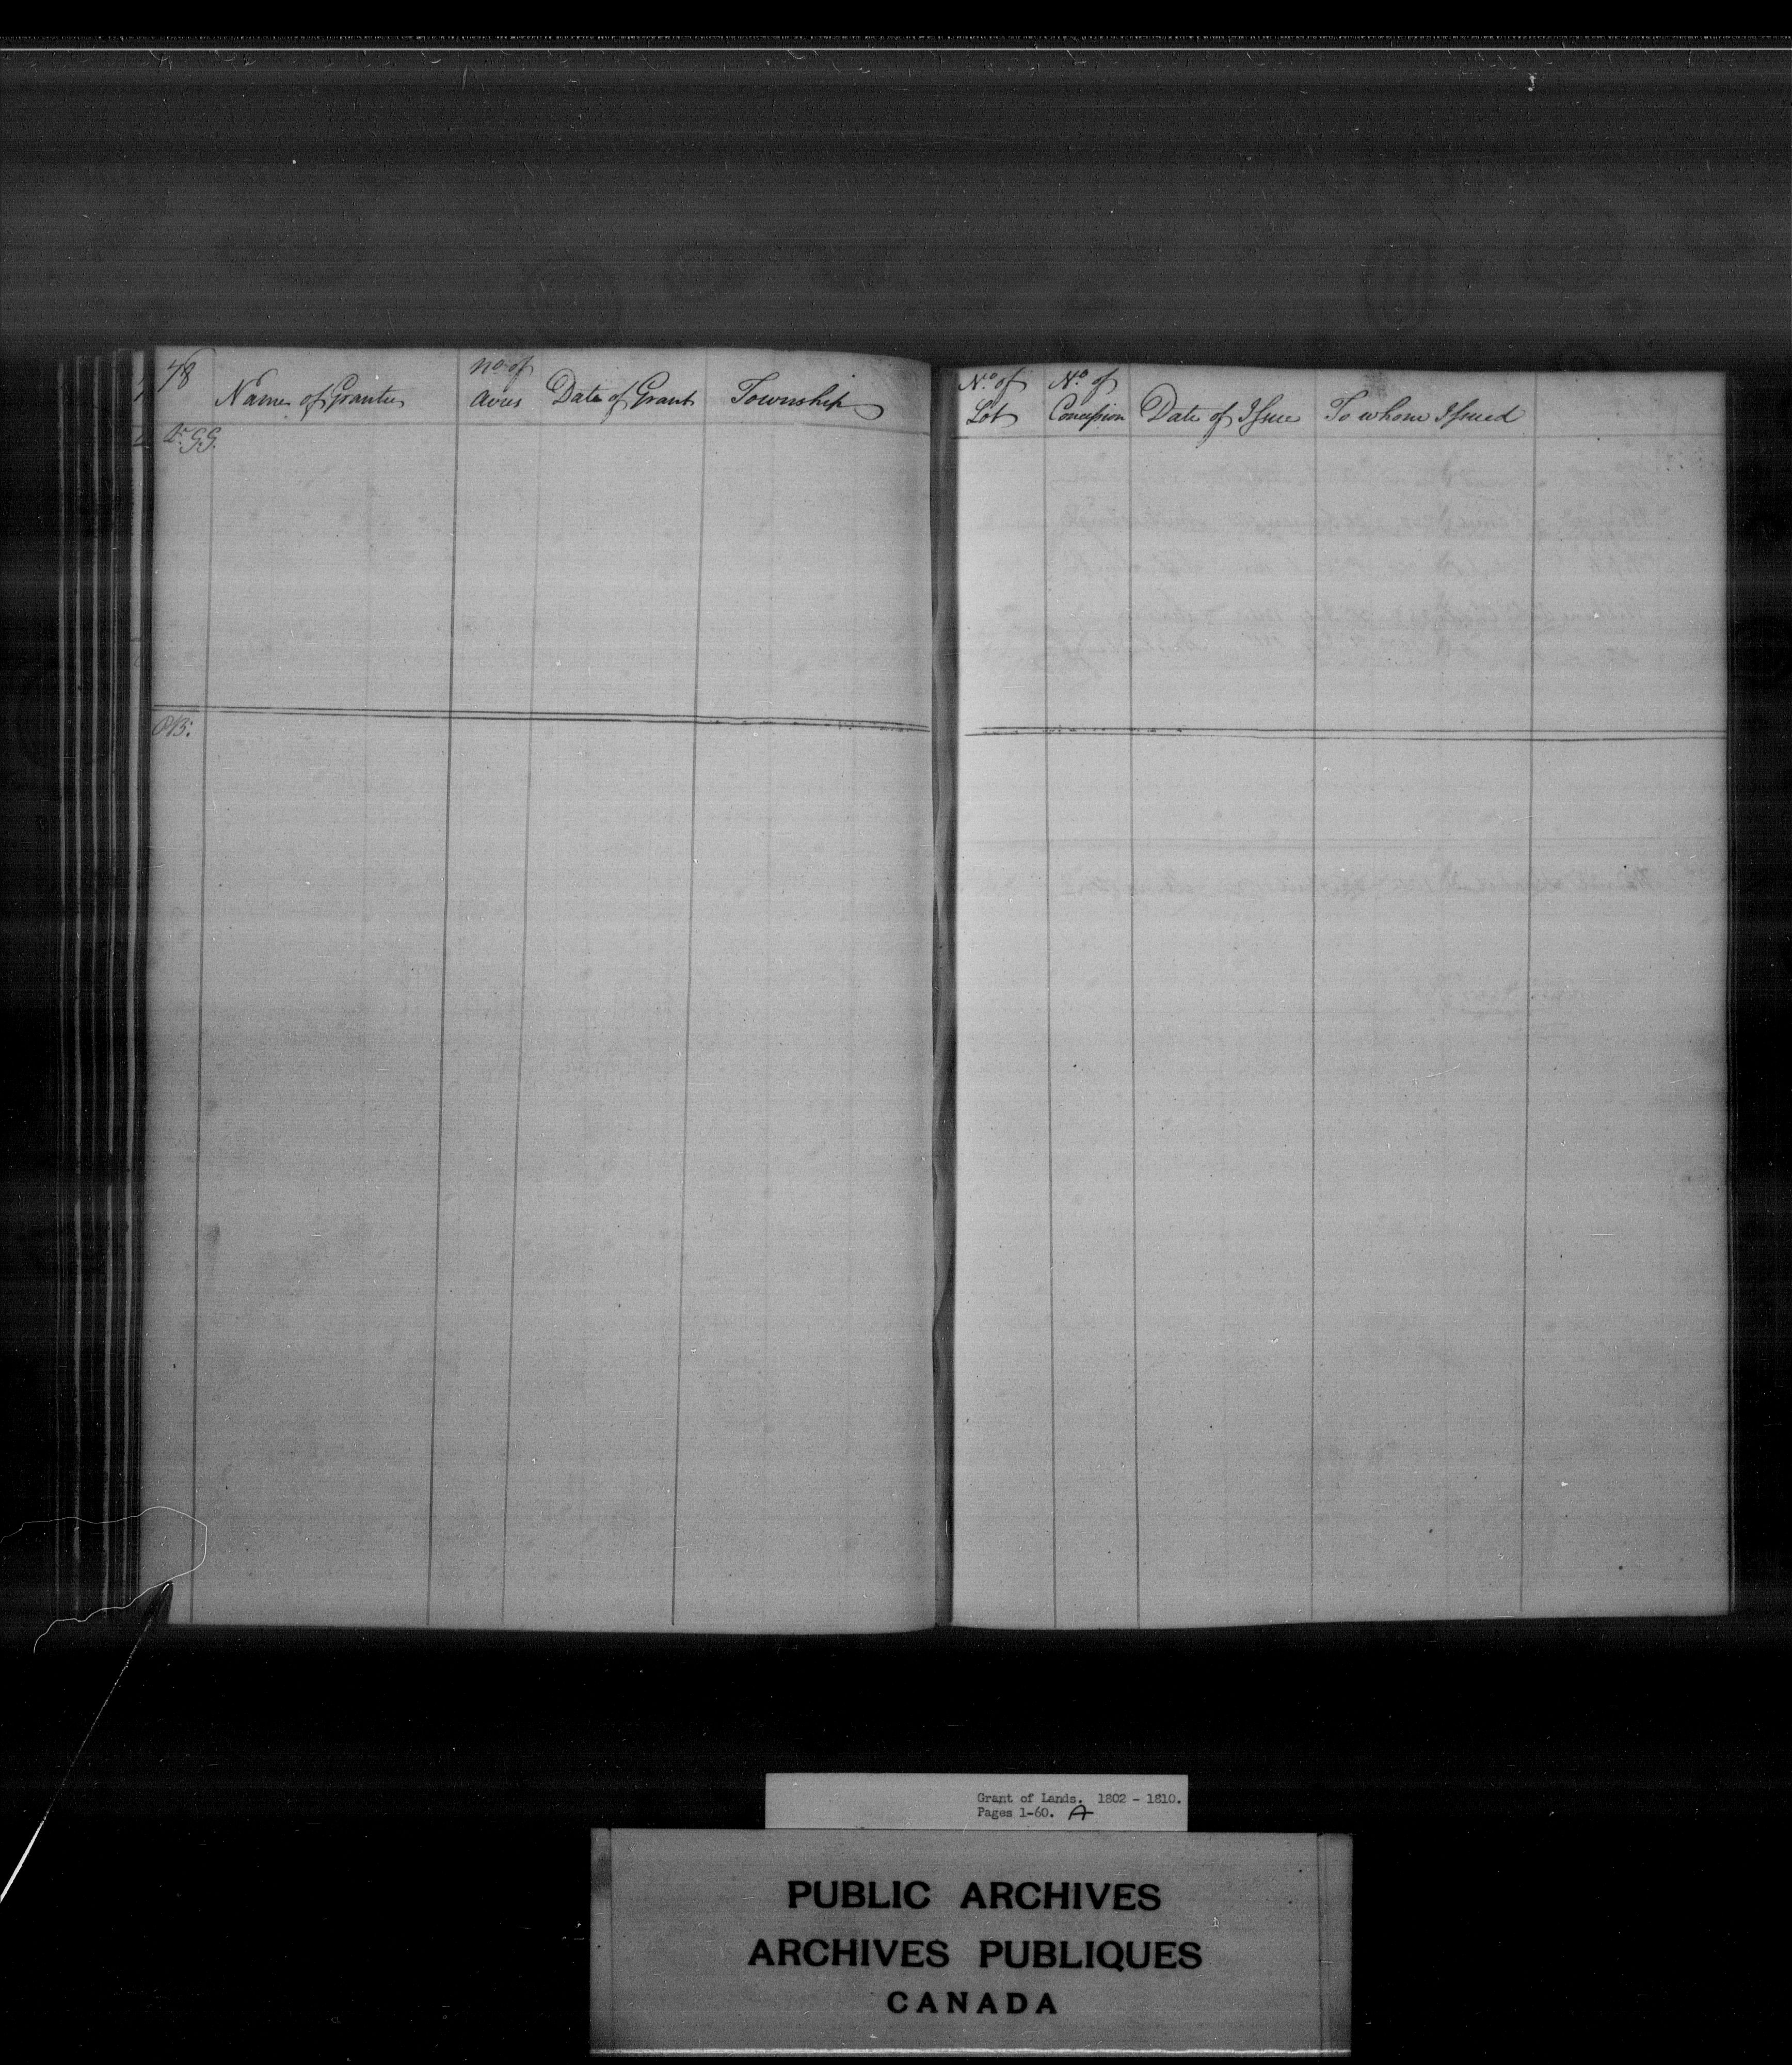 48
Names of Grantees
No. of
Acres
Date of Grant
Township
No. of
Lot
No. of
Concession
Date of Issue
To whom Issued
G.G.
O.B:
Grant of Lands. 1802 - 1810.
Pages 1-60. A
PUBLIC ARCHIVES
ARCHIVES PUBLIQUES
CANADA